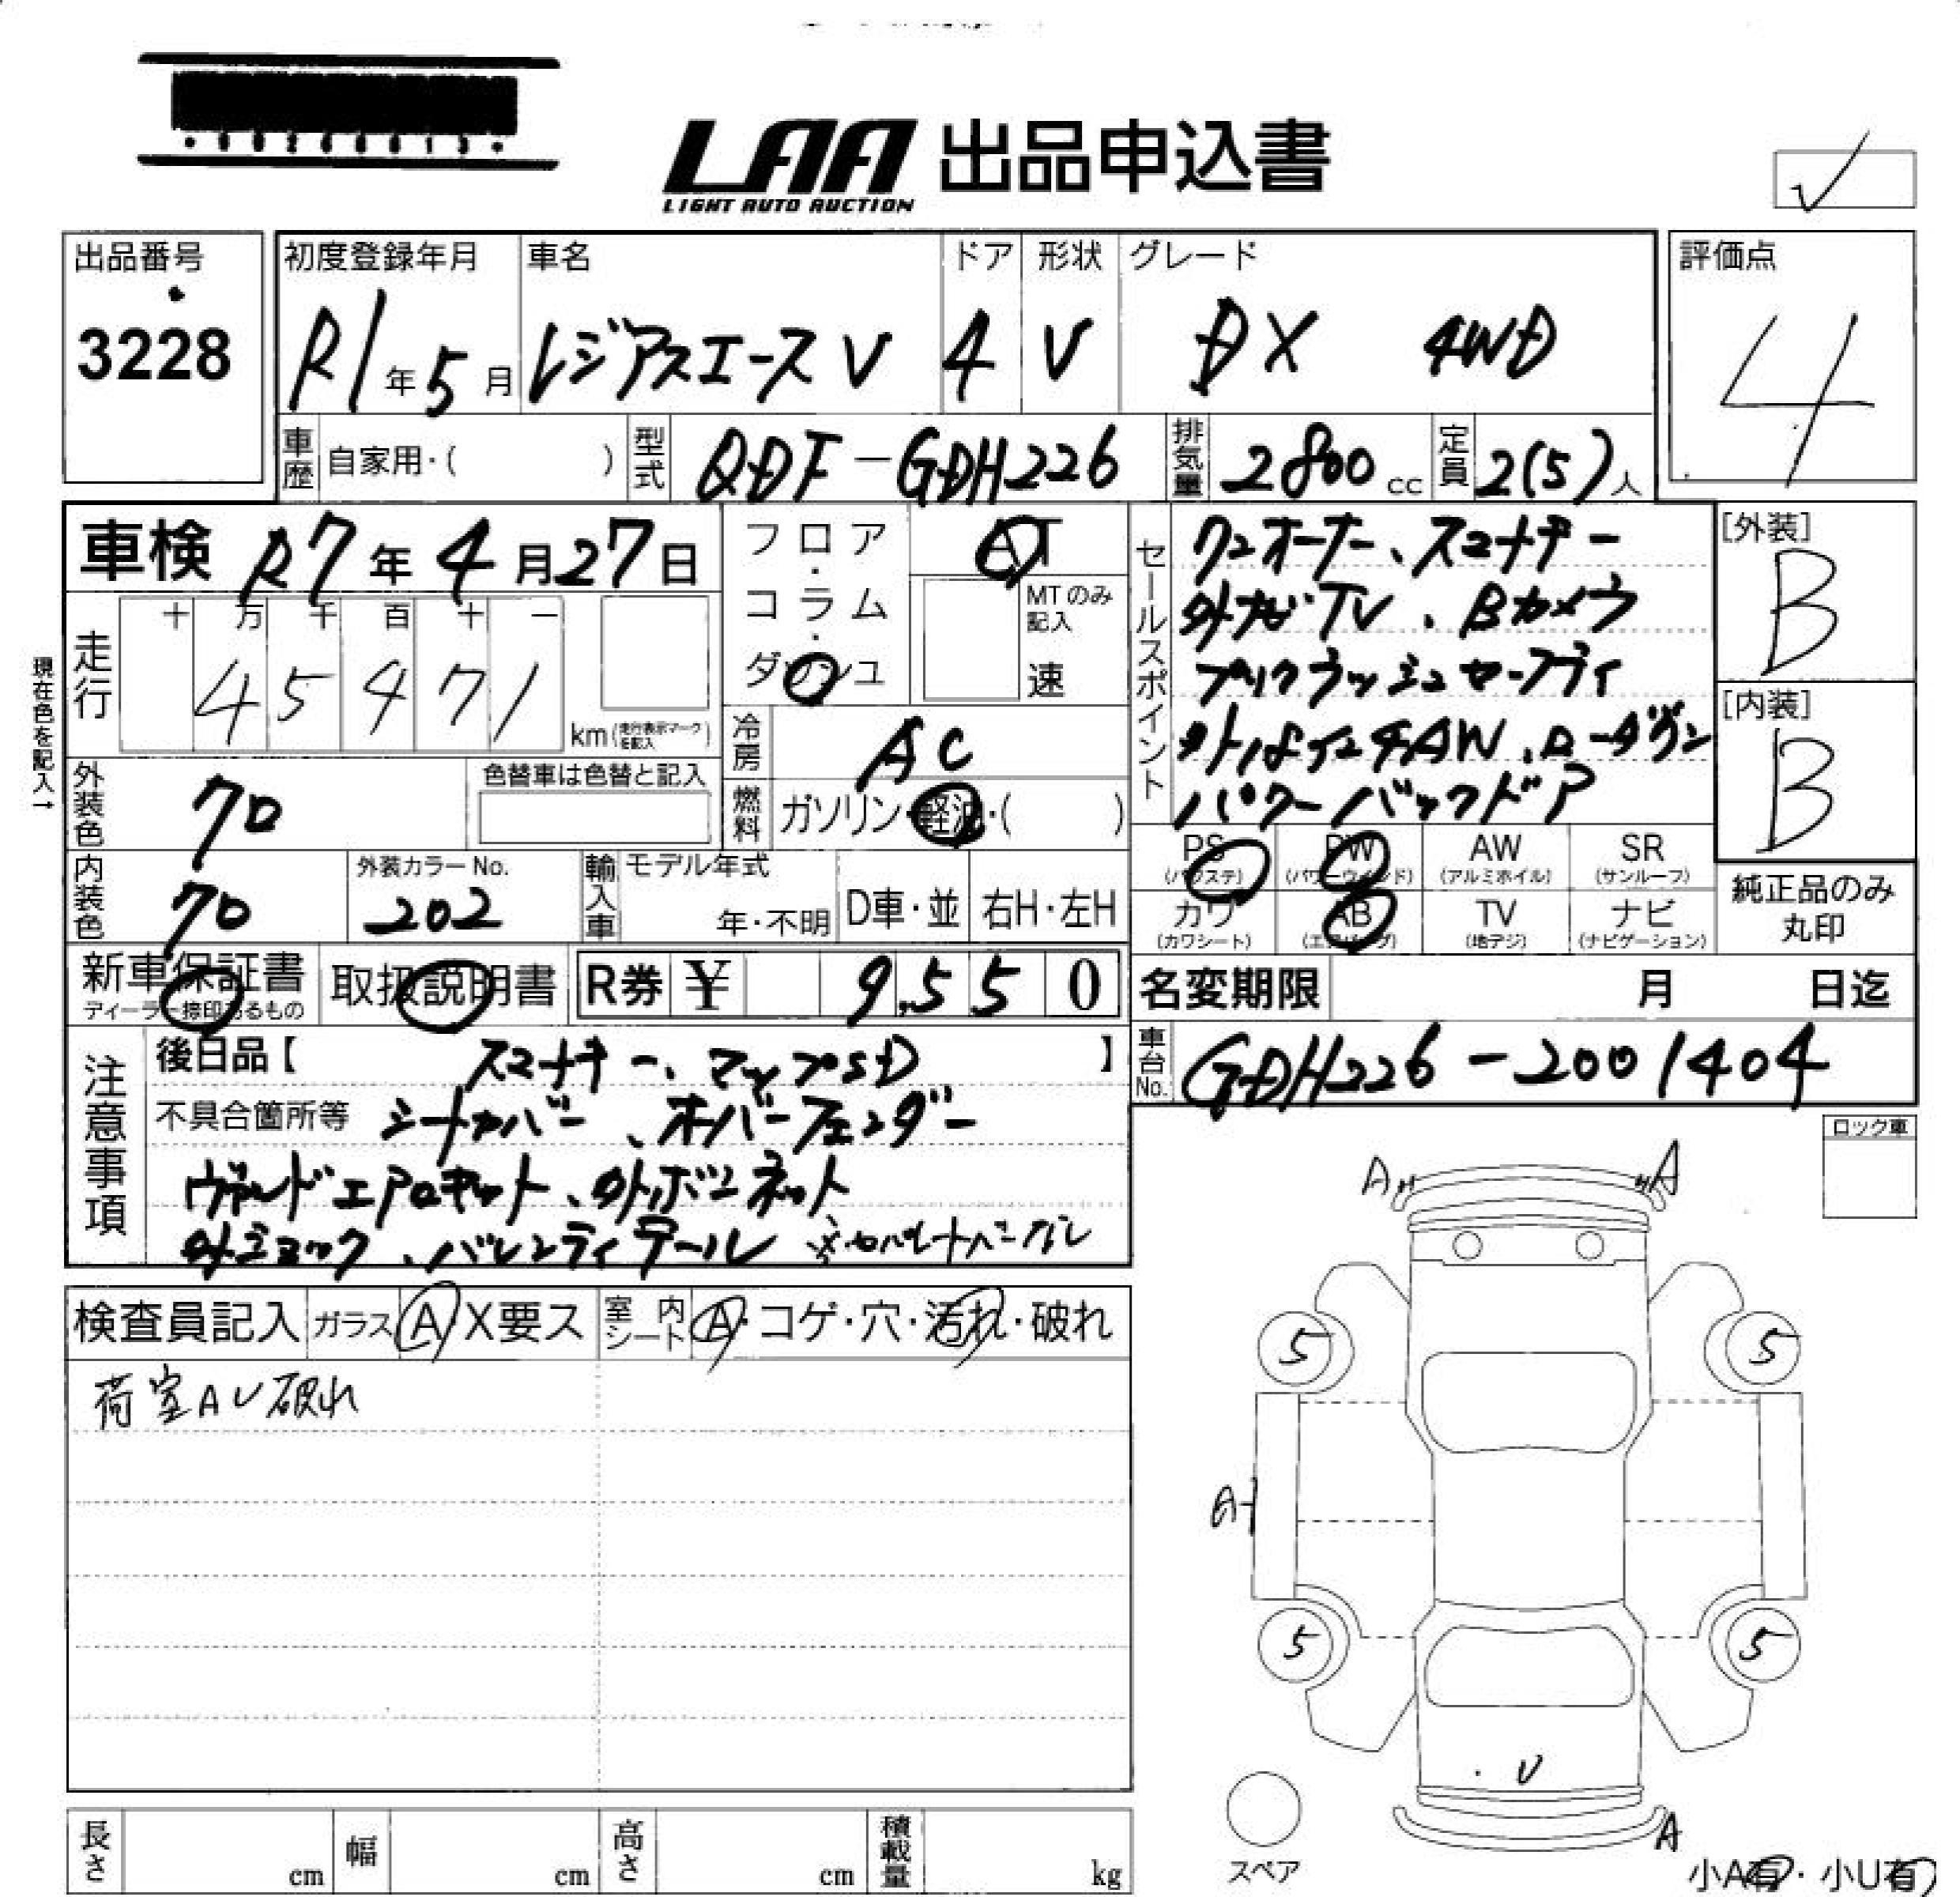 LAA 出品申込書
LIGHT AUTO AUCTION
出品番号
3228
初度登録年月
R1年5月
車名
レジアスエースV
ドア
4
形状
V
グレード
DX 4WD
評価点
4
車歴 自家用・( )
型式 QDF-GDH226
排気量 2800cc
定員 2(5)人
車検 R7年4月27日
フロア・コラム・ダッシュ
AT
MTのみ記入
速
現在色を記入→
走行
十 万 千 百 十 一
4 5 4 7 1
km(走行表示マークを記入)
冷房 AC
燃料 ガソリン・軽油・( )
外装色 70
色替車は色替と記入
内装色 70
外装カラーNo.
202
輸入車
モデル年式
年・不明
D車・並
右H・左H
セールスポイント
ワンオーナー、スマートキー
外ナビTV、Bカメラ
プリクラッシュセーフティ
外17インチAW、ローダウン
パワーバックドア
[外装]
B
[内装]
B
PS (パワステ)
PW (パワーウィンド)
AW (アルミホイル)
SR (サンルーフ)
カワ (カワシート)
AB (エアバッグ)
TV (地デジ)
ナビ (ナビゲーション)
純正品のみ丸印
新車保証書
ディーラー捺印あるもの
取扱説明書
R券 ¥ 9,550
名変期限 月 日迄
車台No. GDH226-2001404
注意事項
後日品【 スマートキー、マップSD 】
不具合箇所等 シートカバー、オーバーフェンダー
エアロキット、外ボンネット
外ショック、バレンティテール
ロック車
A A
検査員記入
ガラス A X要ス
室内シート A・コゲ・穴・汚れ・破れ
荷室AU破れ
5 5
A
5 5
U
A
スペア
小A有・小U有
長さ cm
幅 cm
高さ cm
積載量 kg